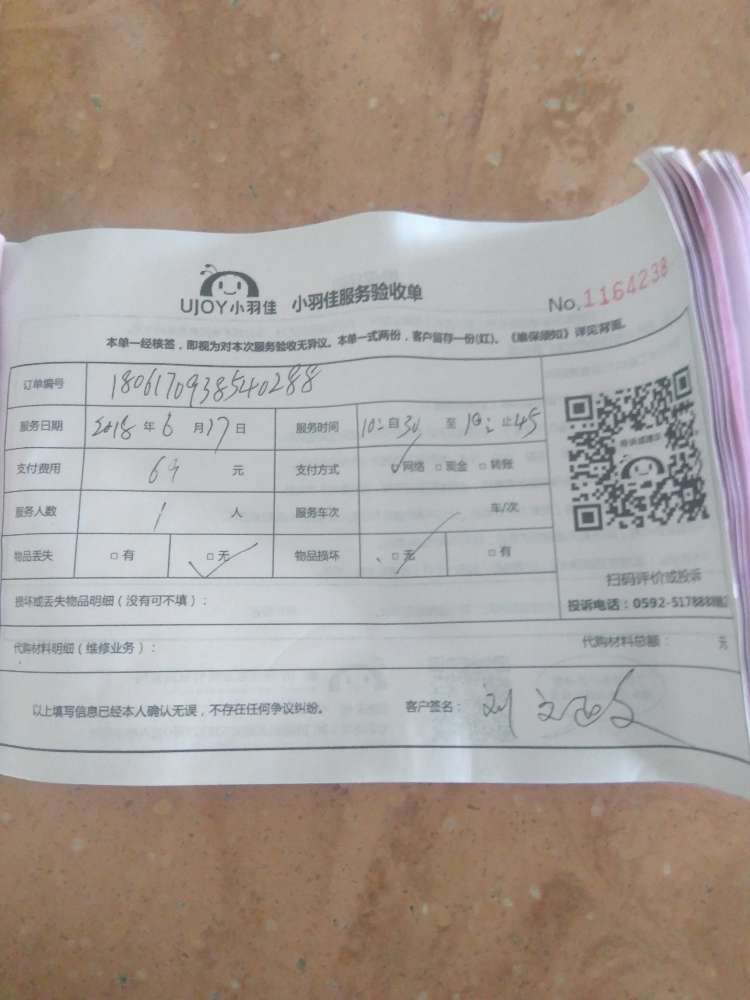 UJOY小羽佳 小羽佳服务验收单 No.1164238
本单一经核签，即视为对本次服务验收无异议。本单一式两份，客户留存一份(红)。《维保须知》详见背面。
订单编号 180617093854028​8
服务日期 2018 年 6 月 17 日 服务时间 10:自30 至 止45
支付费用 元 支付方式 ✓网络 □现金 □转账
服务人数 1 人 服务车次 车/次
物品丢失 □有 □无 ✓ 物品损坏 □无 ✓ □有
扫码评价或投诉
损坏或丢失物品明细（没有可不填）：
投诉电话：0592-517888
代购材料明细（维修业务）： 代购材料总额： 元
以上填写信息已经本人确认无误，不存在任何争议纠纷。 客户签名：刘文